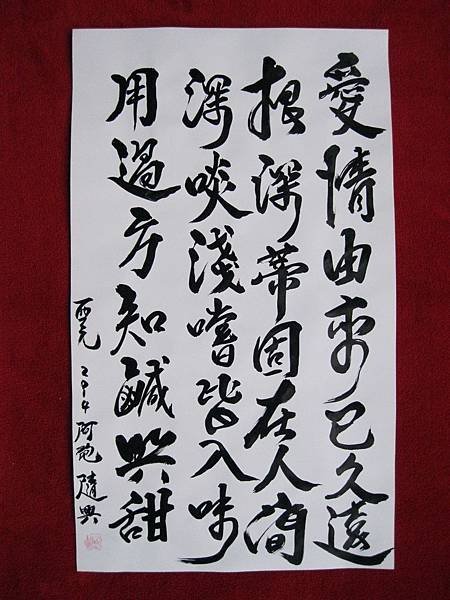 愛情由來已久遠
根深蒂固在人間
深啖淺嚐皆入味
用過方知鹹與甜
西元2014阿跑隨興